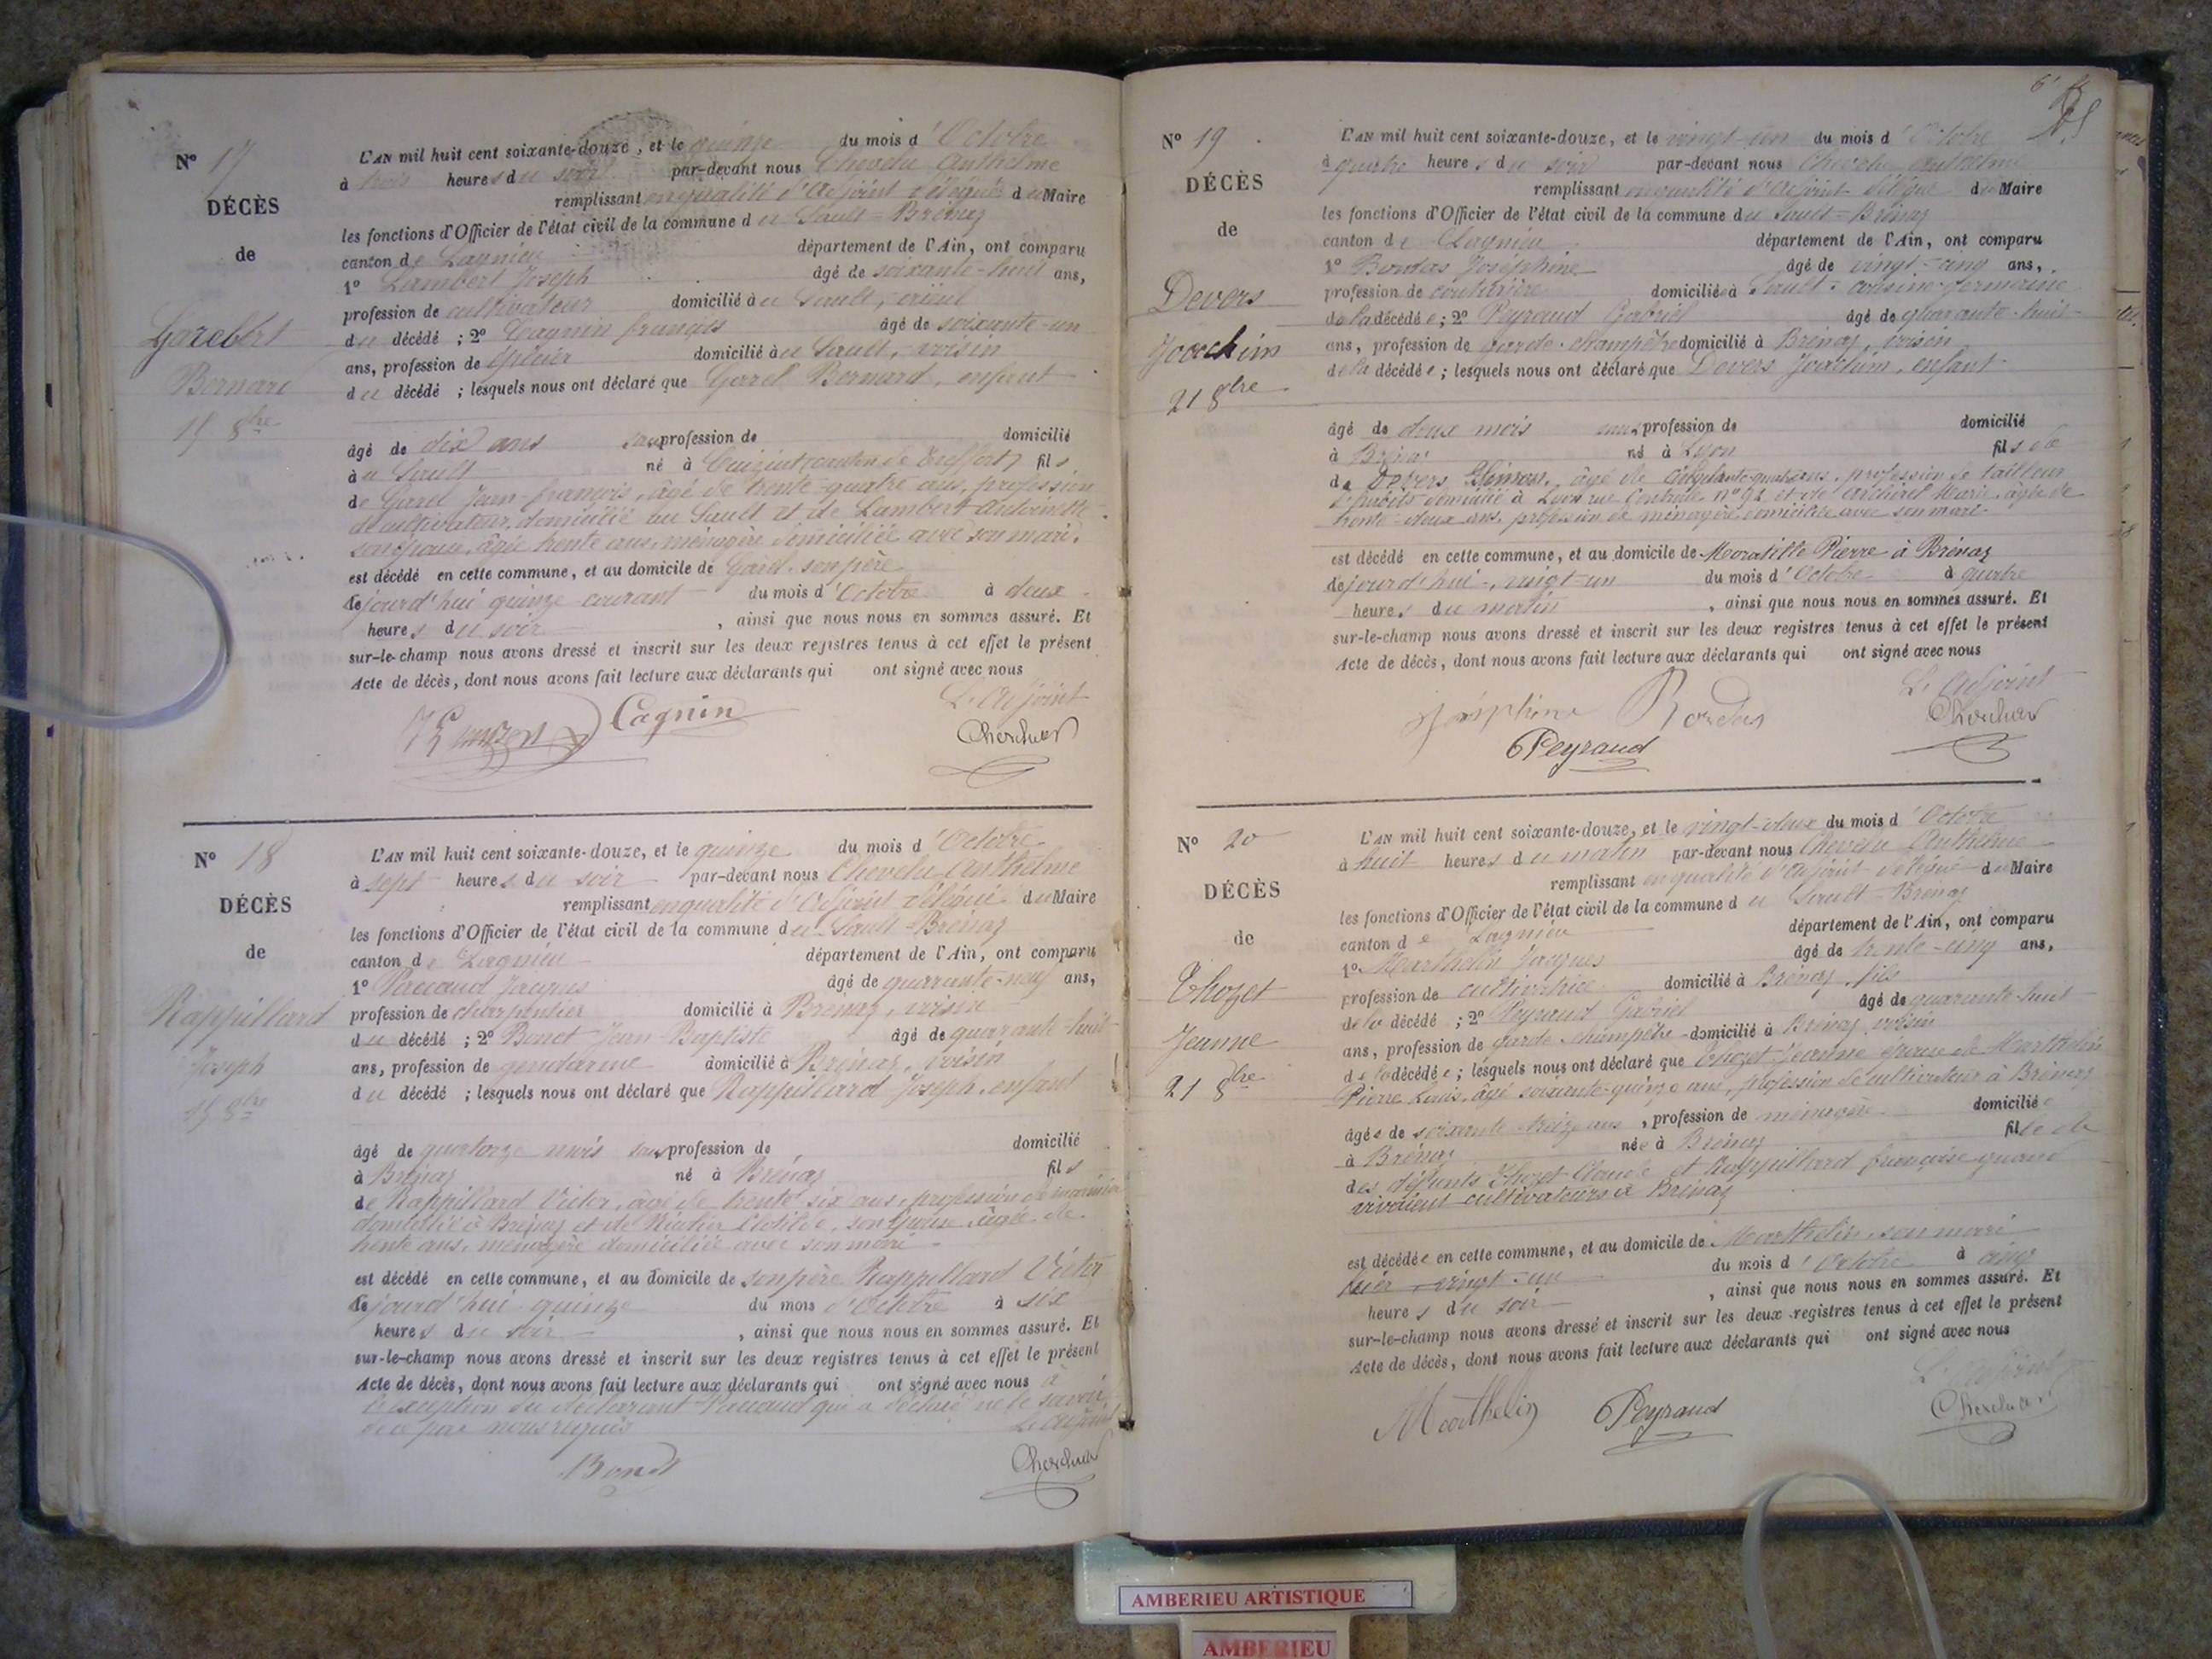 N° 17
DÉCÈS
de
Bernard
15 8bre
L'AN mil huit cent soixante-douze, et le quinze du mois d'Octobre
à trois heures du soir par-devant nous Chevelu Anthelme
remplissant en qualité d'Adjoint délégué du Maire
les fonctions d'Officier de l'état civil de la commune du Sault-Brénaz
canton de Lagnieu département de l'Ain, ont comparu
1° Lambert Joseph âgé de soixante-huit ans,
profession de cultivateur domicilié au Sault,
du décédé ; 2° Cagnin françois âgé de soixante-un
ans, profession de épicier domicilié au Sault, voisin
du décédé ; lesquels nous ont déclaré que Garel Bernard, enfant
âgé de dix ans sans profession de domicilié
au Sault né à Cuisiat (canton de Treffort) fils
de Garel Jean-françois, âgé de trente-quatre ans, profession
de cultivateur, domicilié au Sault et de Lambert Antoinette
son épouse, âgée trente ans, ménagère domiciliée avec son mari,
est décédé en cette commune, et au domicile de Garel, son père
de jourd'hui quinze courant du mois d'Octobre à deux
heures du soir , ainsi que nous nous en sommes assuré. Et
sur-le-champ nous avons dressé et inscrit sur les deux registres tenus à cet effet le présent
Acte de décès, dont nous avons fait lecture aux déclarants qui ont signé avec nous
L'Adjoint
Cagnin
N° 18
DÉCÈS
de
Rappillard
Joseph
15 8bre
L'AN mil huit cent soixante-douze, et le quinze du mois d'Octobre
à sept heures du soir par-devant nous Chevelu Anthelme
remplissant en qualité d'Adjoint délégué du Maire
les fonctions d'Officier de l'état civil de la commune du Sault-Brénaz
canton de Lagnieu département de l'Ain, ont comparu
1° Jacques âgé de quarante-neuf ans,
profession de charpentier domicilié à Brénaz, voisin
du décédé ; 2° Bonet Jean-Baptiste âgé de quarante-huit
ans, profession de gendarme domicilié à Brénaz, voisin
du décédé ; lesquels nous ont déclaré que Rappillard Joseph, enfant
âgé de quatorze mois sans profession de domicilié
à Brénaz né à Brénaz fils
de Rappillard Victor, âgé de trente six ans, profession de marinier
domicilié à Brénaz et de Clotilde, son épouse âgée de
trente ans, ménagère domiciliée avec son mari
est décédé en cette commune, et au domicile de son père Rappillard Victor
de jourd'hui quinze du mois d'Octobre à six
heures du soir , ainsi que nous nous en sommes assuré. Et
sur-le-champ nous avons dressé et inscrit sur les deux registres tenus à cet effet le présent
Acte de décès, dont nous avons fait lecture aux déclarants qui ont signé avec nous à
l'exception du déclarant qui a déclaré ne le savoir
de ce par nous requis
L'Adjoint
N° 19
DÉCÈS
de
Devers
Joachim
21 8bre
L'AN mil huit cent soixante-douze, et le vingt-un du mois d'Octobre
à quatre heures du soir par-devant nous Chevelu Anthelme
remplissant en qualité d'Adjoint délégué du Maire
les fonctions d'Officier de l'état civil de la commune du Sault-Brénaz
canton de Lagnieu département de l'Ain, ont comparu
1° Bordas Joséphine âgé de vingt-cinq ans,
profession de couturière domiciliée à Sault, cousine germaine
de la décédée ; 2° Peyraud Gabriel âgé de quarante-huit
ans, profession de garde-champêtre domicilié à Brénaz, voisin
de la décédée ; lesquels nous ont déclaré que Devers Joachim, enfant
âgé de deux mois sans profession de domicilié
à Brénaz né à Lyon fils de
de Devers âgé de cinquante-quatre ans, profession de tailleur
d'habits domicilié à Lyon rue n° 92 et de Marie, âgée de
trente-deux ans, profession de ménagère domiciliée avec son mari
est décédé en cette commune, et au domicile de Pierre à Brénaz
de jourd'hui, vingt-un du mois d'Octobre à quatre
heures du matin , ainsi que nous nous en sommes assuré. Et
sur-le-champ nous avons dressé et inscrit sur les deux registres tenus à cet effet le présent
Acte de décès, dont nous avons fait lecture aux déclarants qui ont signé avec nous
L'Adjoint
Joséphine Bordas
Peyraud
N° 20
DÉCÈS
de
Thozet
Jeanne
21 8bre
L'AN mil huit cent soixante-douze, et le vingt-deux du mois d'Octobre
à huit heures du matin par-devant nous Chevelu Anthelme
remplissant en qualité d'Adjoint délégué du Maire
les fonctions d'Officier de l'état civil de la commune du Sault-Brénaz
canton de Lagnieu département de l'Ain, ont comparu
1° Marthelin Jacques âgé de trente-cinq ans,
profession de domicilié à Brénaz, fils
de la décédé ; 2° Peyraud Gabriel âgé de quarante-huit
ans, profession de garde-champêtre domicilié à Brénaz, voisin
de la décédée ; lesquels nous ont déclaré que Thozet Jeanne épouse de Marthelin
Pierre Louis, âgé soixante-quinze ans, profession de cultivateur à Brénaz
âgée de soixante-treize ans , profession de ménagère domicilié
à Brénaz née à Brénaz fille de
des défunts Thozet Claude et Rappillard françoise quand
vivaient cultivateurs à Brénaz
est décédée en cette commune, et au domicile de Marthelin, son mari
hier, vingt-un du mois d'Octobre à cinq
heures du soir , ainsi que nous nous en sommes assuré. Et
sur-le-champ nous avons dressé et inscrit sur les deux registres tenus à cet effet le présent
Acte de décès, dont nous avons fait lecture aux déclarants qui ont signé avec nous
L'Adjoint
Marthelin Peyraud
AMBERIEU ARTISTIQUE
AMBERIEU